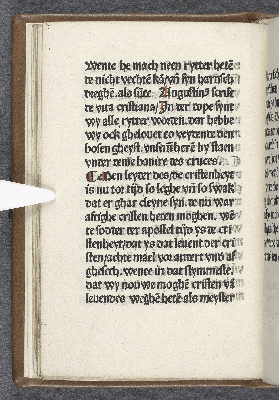 Wente he mach neen rytter heten
de nicht vechten kan/vn syn harnsch
dreghen als sunte Augustinus scrift
de vita cristiana/In der dope synt
wy alle rytter worden. dar hebbe
wy ock ghelouet to vorende den
bosen gheyst vnser heren by staen
vnder deme banire des cruces
Men leyder des/de cristenheyt
is nu tor tijd so leghe vn so swak
dat er ghar cleyne syn. de nu war
aftighe cristen heten moghen. wen
te sodder der apostel tijd ys de cri
stenheyt/dat ys dat leuent der cri
sten/achte mael vor
ghelesch. wente in dat
dat wy nouwe moghen cristen vn
leuendes weghen heten als meyster